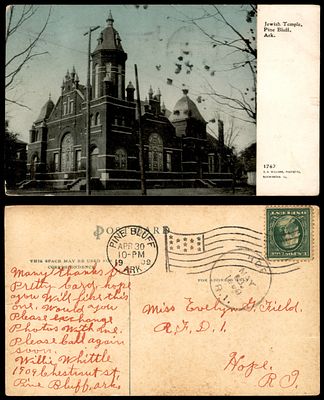 Jewish Temple,
Pine Bluff,
Ark.
1747
POST CARD
THIS SPACE MAY BE USED FOR
CORRESPONDENCE
FOR ADDRESS ONLY
PINE BLUFF
APR 30
10-PM
1909
ARK.
Many thanks for
Pretty Card, hope
you Will like this
one. Would you
Please exchange
Photos With me.
Please Call again
soon.
Willie Whittle
1704 Chestnut st,
Pine Bluff, Ark.
Miss Evelyn G. Field,
R.F.D. 1.
Hope,
R.I.